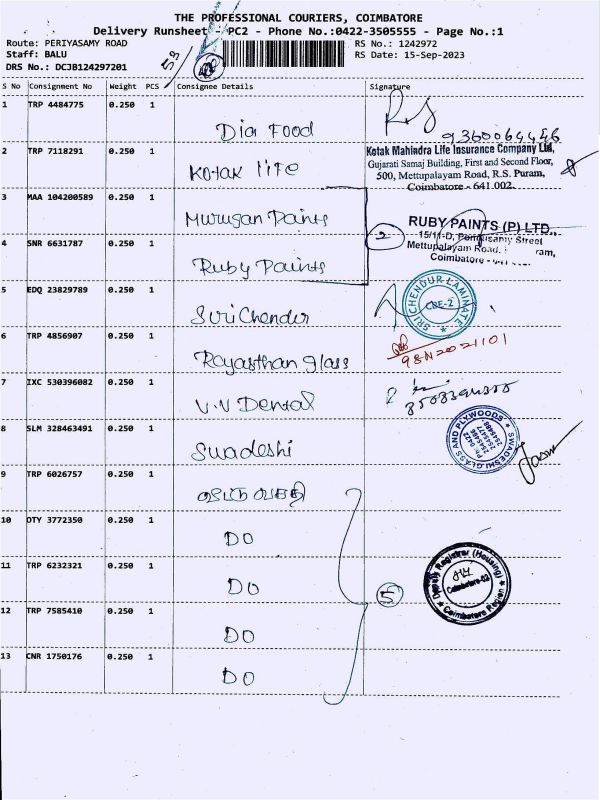 THE PROFESSIONAL COURIERS, COIMBATORE
Delivery Runsheet - PC2 - Phone No.:0422-3505555 - Page No.:1
Route: PERIYASAMY ROAD
Staff: BALU
DRS No.: DCJB124297201
59
RS No.: 1242972
RS Date: 15-Sep-2023
S No Consignment No Weight PCS Consignee Details Signature
1 TRP 4484775 0.250 1 Dia Food 9360064446
2 TRP 7118291 0.250 1 Kotak life
Kotak Mahindra Life Insurance Company Ltd,
Gujarati Samaj Building, First and Second Floor,
500, Mettupalayam Road, R.S. Puram,
Coimbatore - 641 002.
3 MAA 104200589 0.250 1 Murugan Paints
2
RUBY PAINTS (P) LTD.,
15/11-D, Ponnusamy Street
Mettupalayam Road, ram,
Coimbatore - 641
4 SNR 6631787 0.250 1 Ruby Paints
5 EDQ 23829789 0.250 1 Sri Chendur
SRI CHENDUR LAMINATE
CBE-2
6 TRP 4856907 0.250 1 Rajasthan glass
9842021101
7 IXC 530396082 0.250 1 V.V Dental
8 SLM 328463491 0.250 1 Swadeshi
SWADESHI GLASS AND PLYWOODS
Ph: 0422
9 TRP 6026757 0.250 1
10 OTY 3772350 0.250 1 DO
11 TRP 6232321 0.250 1 DO
5
Deputy Registrar (Housing)
Coimbatore-02
Coimbatore Region
12 TRP 7585410 0.250 1 DO
13 CNR 1750176 0.250 1 DO